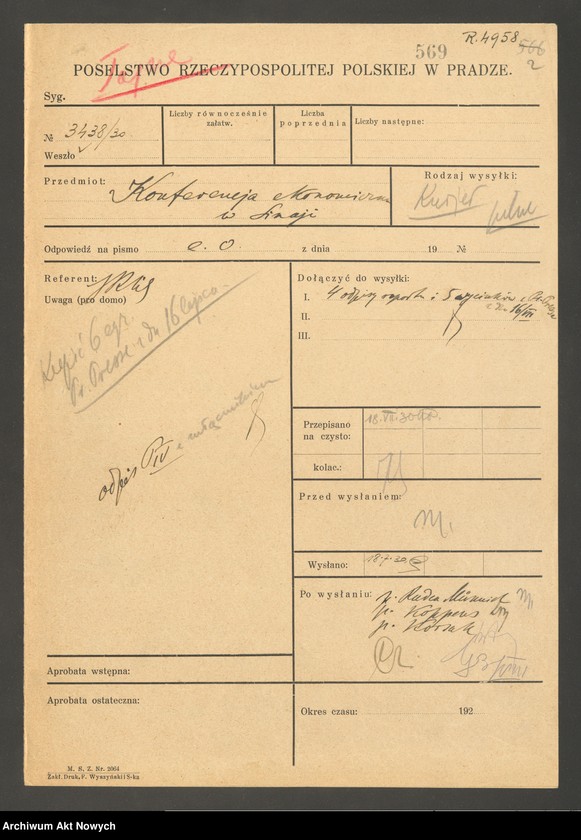 R.4958
569
566
2
Tajne
POSELSTWO RZECZYPOSPOLITEJ POLSKIEJ W PRADZE.
Syg.
№ 3438/30
Weszło
Liczby równocześnie załatw.
Liczba poprzednia
Liczby następne:
Przedmiot: Konferencja ekonomiczna
w Sinaji
Rodzaj wysyłki:
Kurjer
Odpowiedź na pismo e. o. z dnia 19 №
Referent:
Uwaga (pro domo)
Kupić 6 egz.
Pr. Presse z dn 16 lipca.
odpis P IV z
Dołączyć do wysyłki:
I. 4 odpisy raportu i 5 wycinków z Pr. Presse
z dn. 16/VII
II.
III.
Przepisano na czysto: 18.VII.30
kolac.:
Przed wysłaniem:
M.
Wysłano: 18.7.30
Po wysłaniu: p. Radca
p.
p.
Aprobata wstępna:
Aprobata ostateczna:
Okres czasu: 192
M. S. Z. Nr. 2064
Zakł. Druk. F. Wyszyński i S-ka
Archiwum Akt Nowych